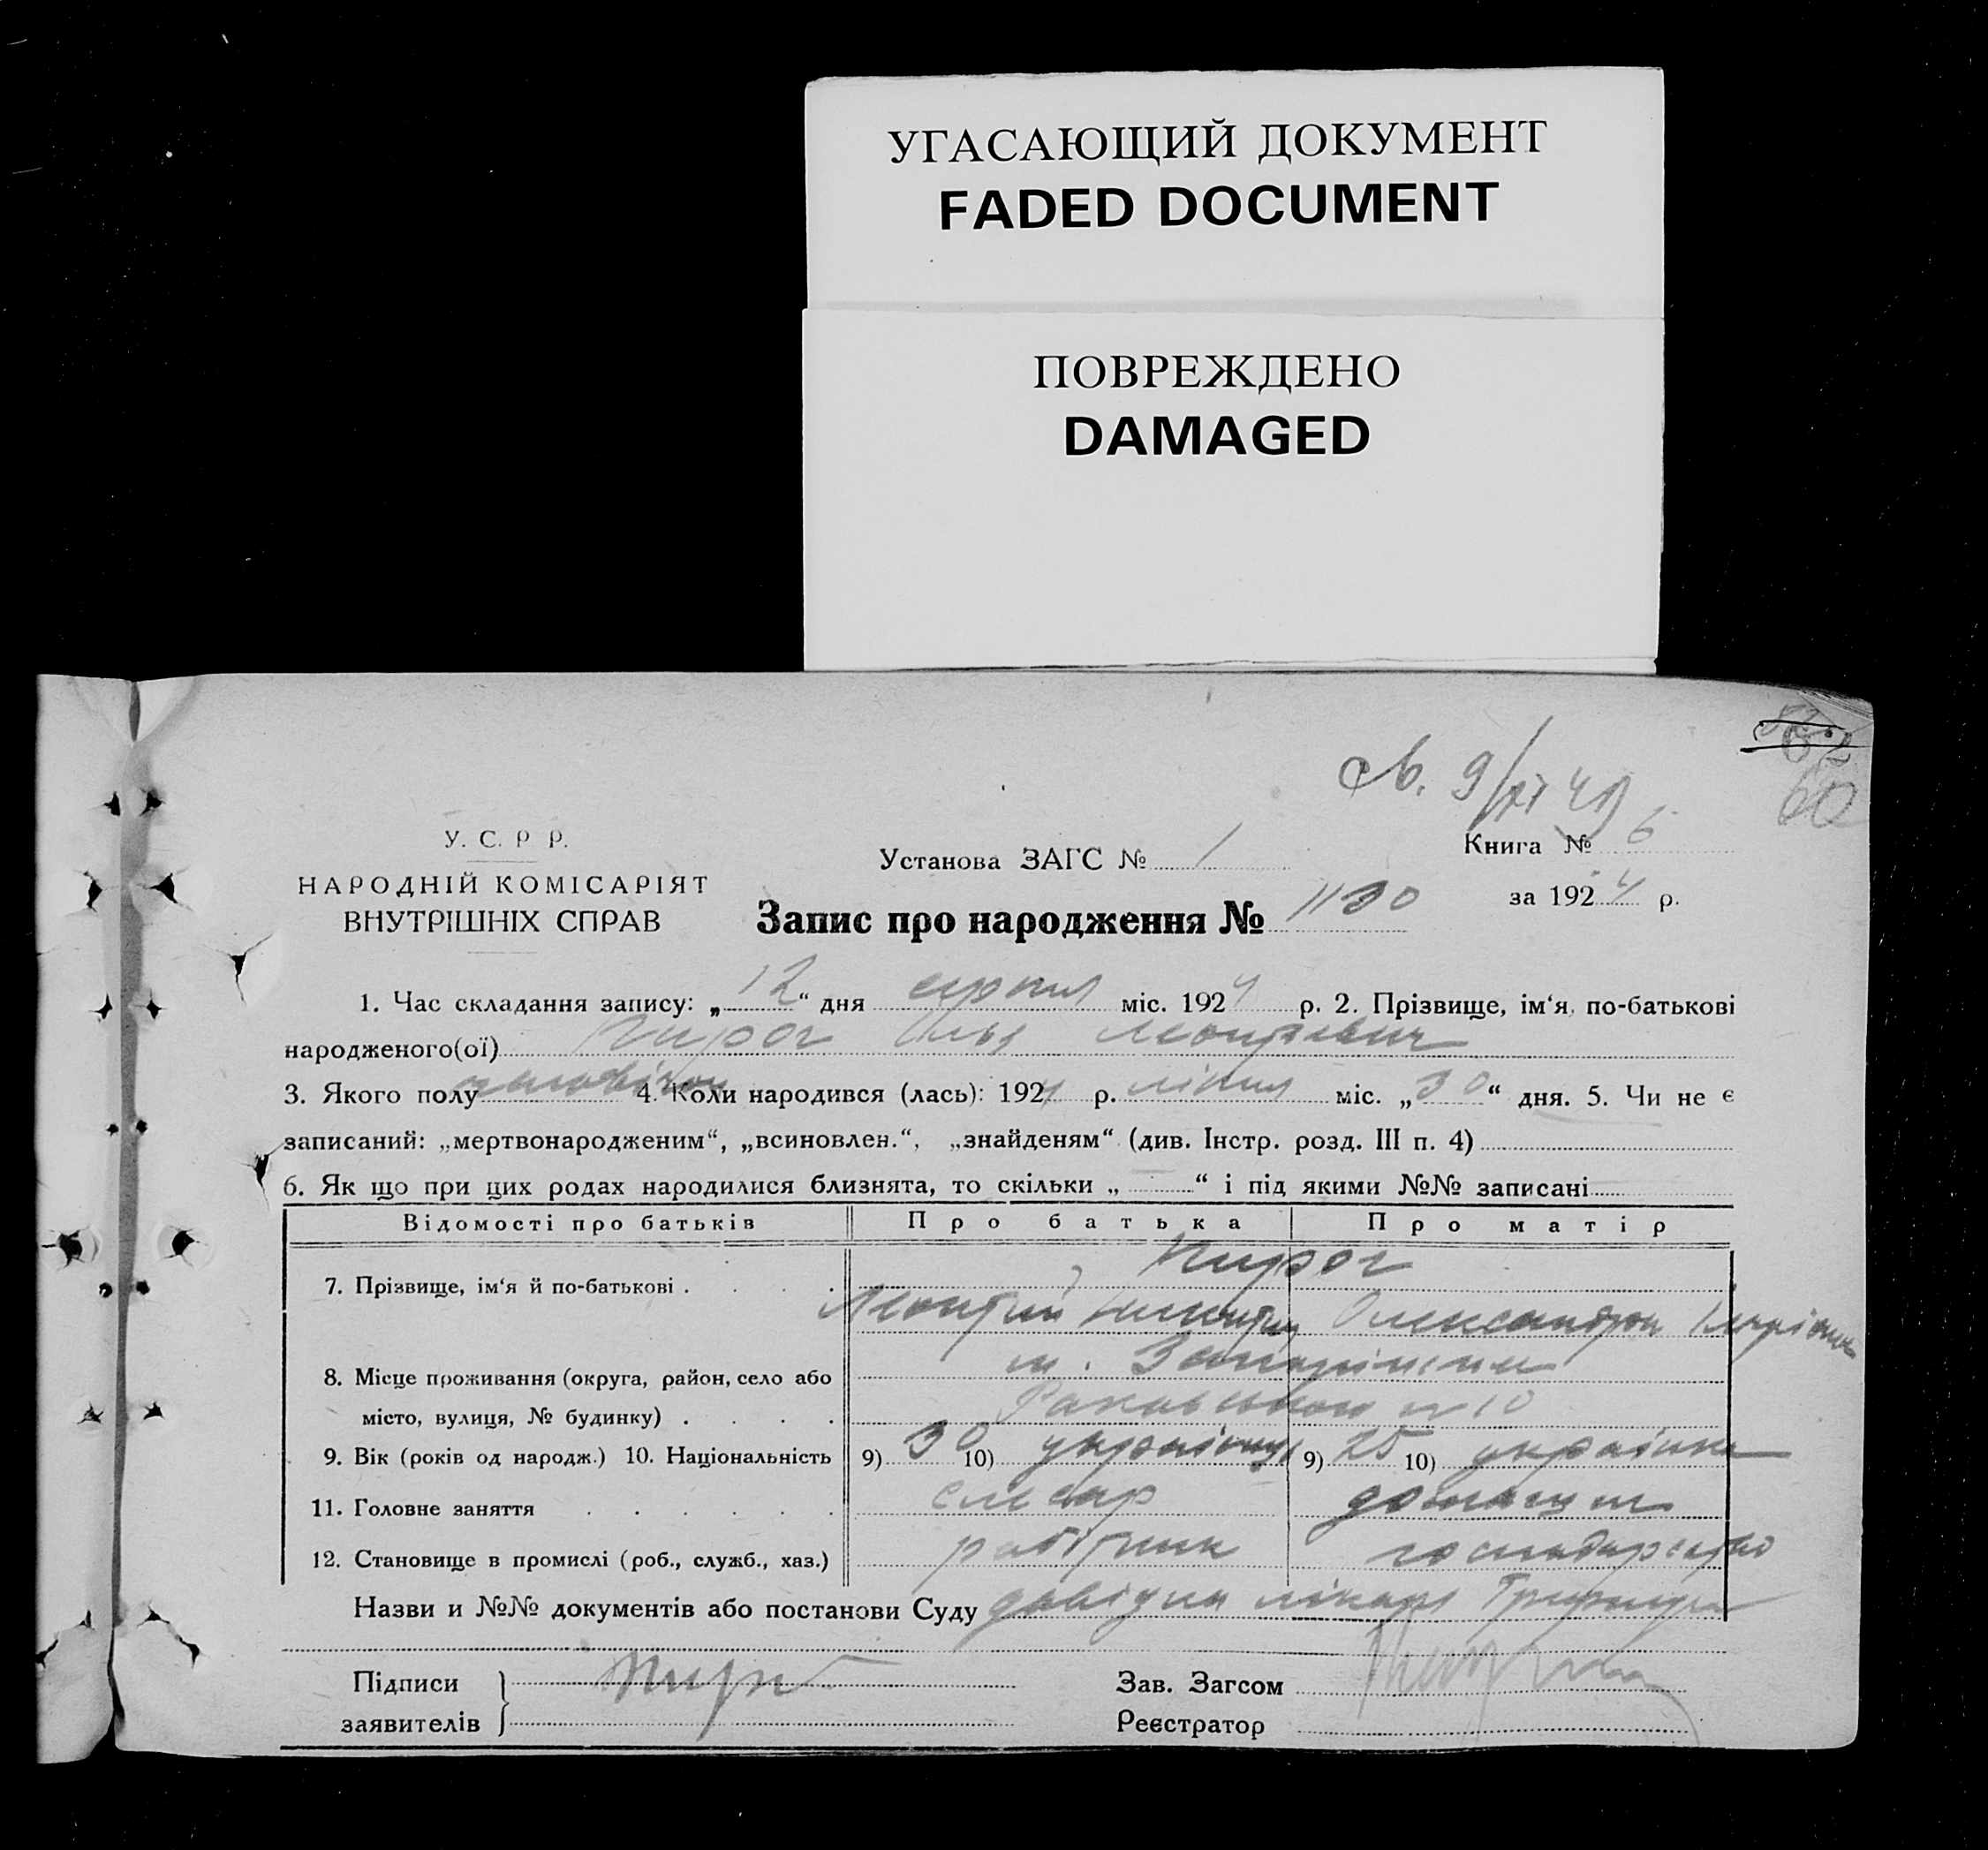 УГАСАЮЩИЙ ДОКУМЕНТ
FADED DOCUMENT
ПОВРЕЖДЕНО
DAMAGED
60
У. С. Р Р.
НАРОДНІЙ КОМІСАРІЯТ
ВНУТРІШНІХ СПРАВ
Установа ЗАГС № 1
Книга № 6
за 1924 р.
Запис про народження № 1130
1. Час складання запису: „12“ дня серпня міс. 1924 р. 2. Прізвище, ім‘я, по-батькові
народженого(ої) Пирог Леонтієвич
3. Якого полу чоловічої 4. Коли народився (лась): 1924 р. липня міс. „30“ дня. 5. Чи не є
записаний: „мертвонародженим“, „всиновлен.“, „знайденям“ (див. Інстр. розд. III п. 4)
6. Як що при цих родах народилися близнята, то скільки „ “ і під якими №№ записані
Відомості про батьків Про батька Про матір
7. Прізвище, ім‘я й по-батькові . . . . Пирог
Леонтий Олександра
8. Місце проживання (округа, район, село або м. Запоріжжя
місто, вулиця, № будинку) . . . . 10
9. Вік (років од народж.) 10. Національність 9) 30 10) українец 9) 25 10) українка
11. Головне заняття . . . . . . слесар домашне
12. Становище в промислі (роб., служб., хаз.) робітник господарство
Назви и №№ документів або постанови Суду довідка лікаря
Підписи Пирог Зав. Загсом
заявителів Реєстратор